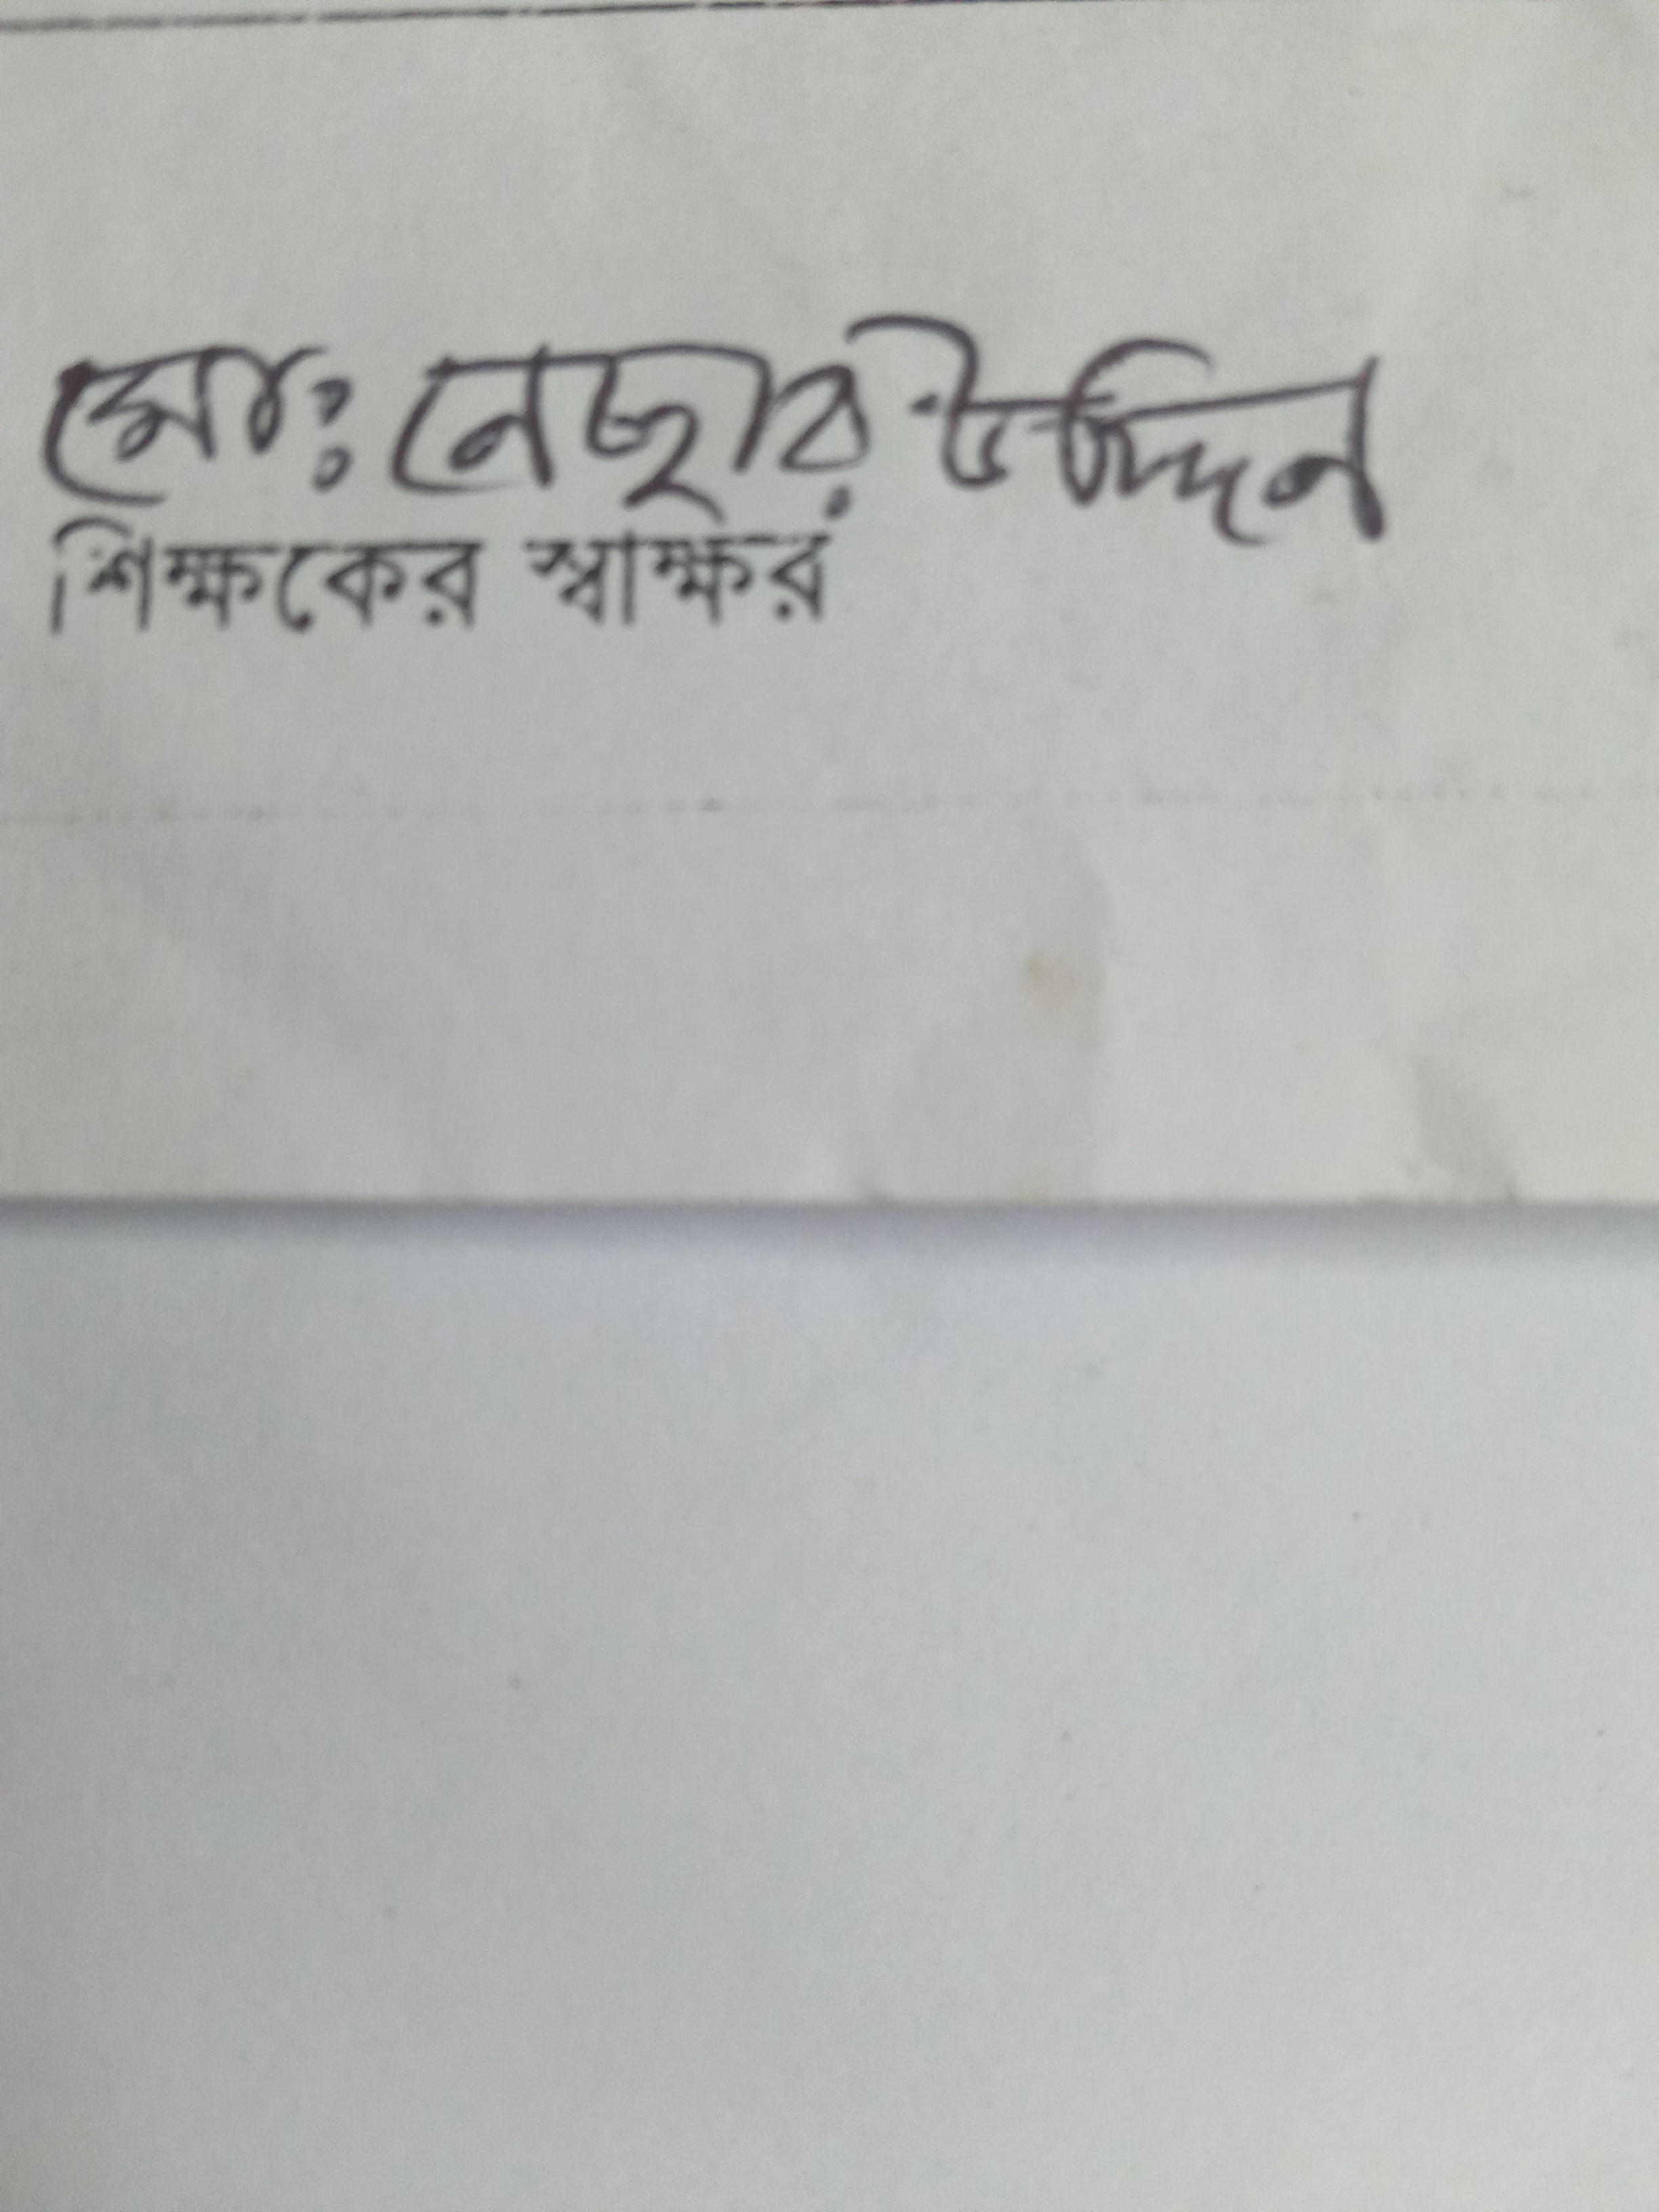 মোঃ নেছার উদ্দিন
শিক্ষকের স্বাক্ষর